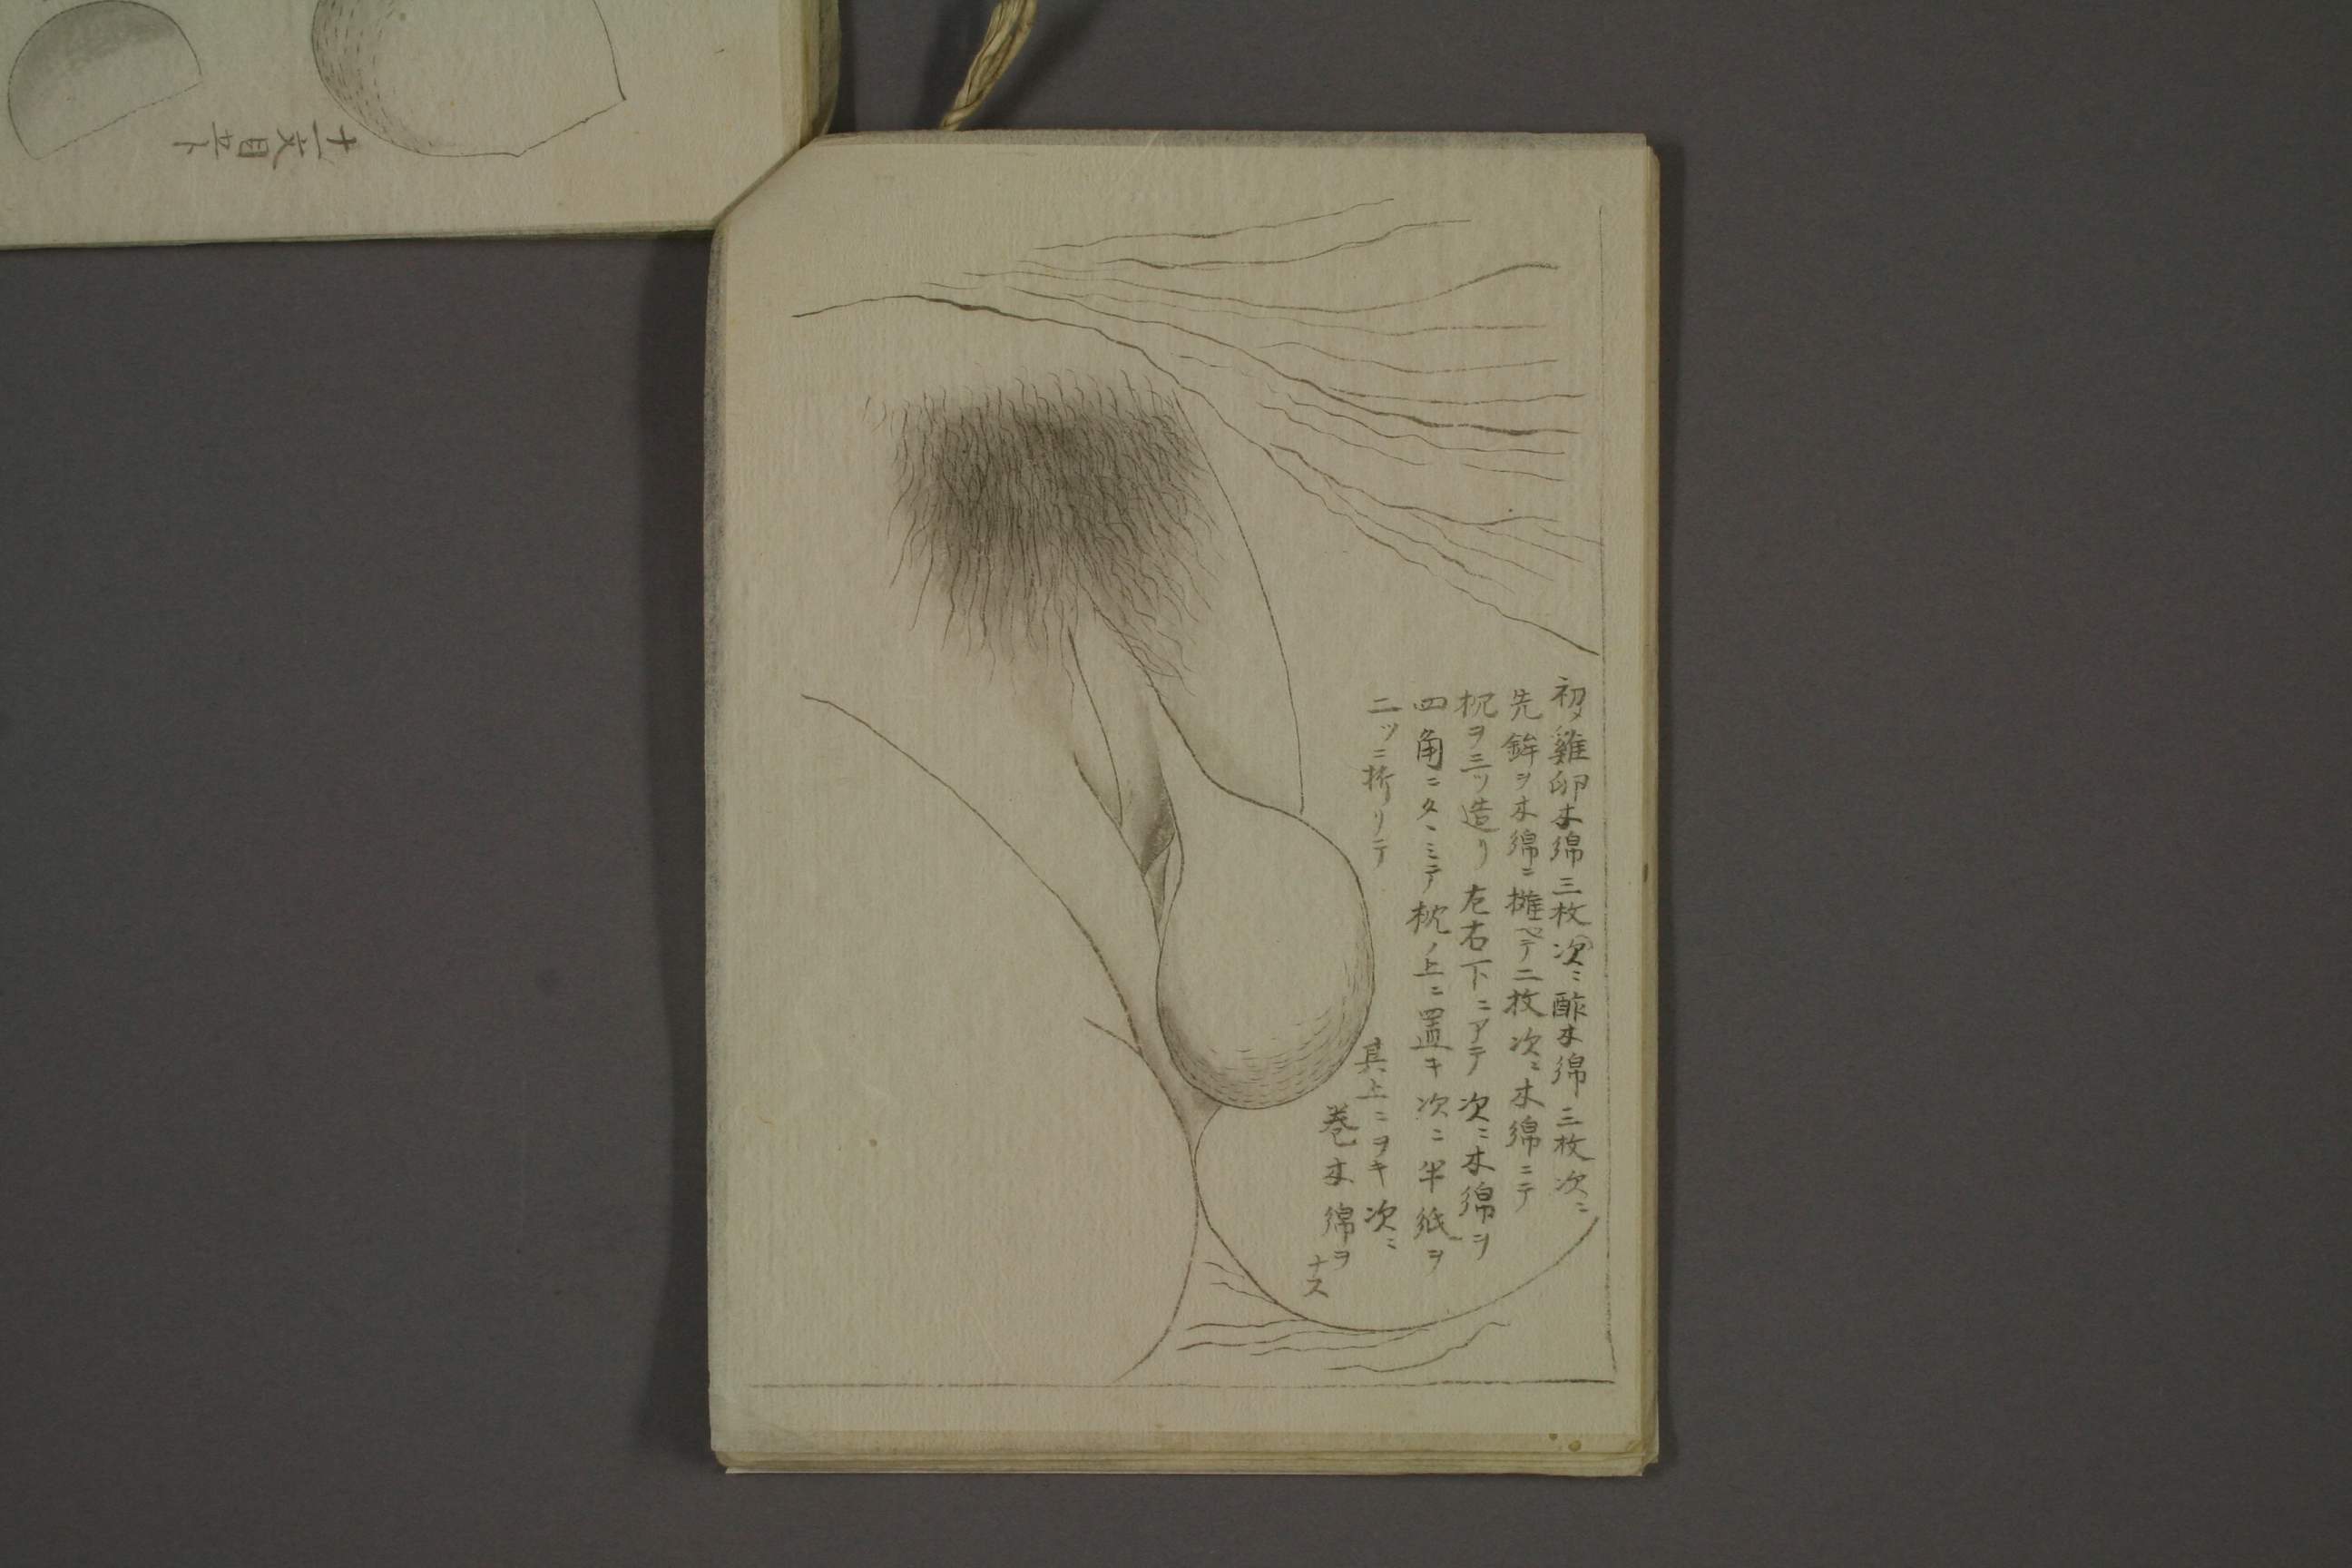 初メ雞卵木綿三枚次ニ酢木綿三枚次ニ
先鉾ヲ木綿ニ攤ベテ二枚次ニ木綿ニテ
枕ヲ三ツ造リ左右下ニアテ次ニ木綿ヲ
四角ニタヽミテ枕ノ上ニ置キ次ニ半紙ヲ
二ツニ折リテ
其上ニヲキ次ニ
巻木綿ヲ
ナス
十一文目五卜